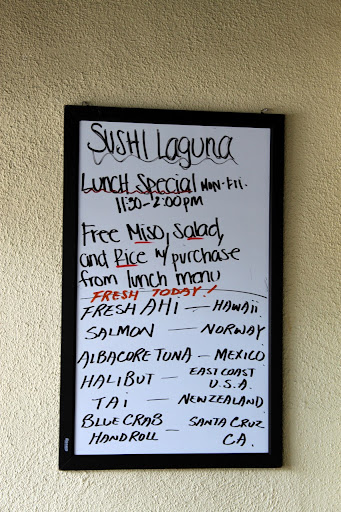 SUSHI Laguna
Lunch Special Mon-Fri.
11:30-2:00pm
Free Miso, Salad,
and Rice w/ purchase
from lunch menu
FRESH TODAY!
FRESH AHI - HAWAII.
SALMON - NORWAY
ALBACORE TUNA - MEXICO
HALIBUT - EAST COAST U.S.A.
TAI - NEW ZEALAND
BLUE CRAB HANDROLL - SANTA CRUZ CA.